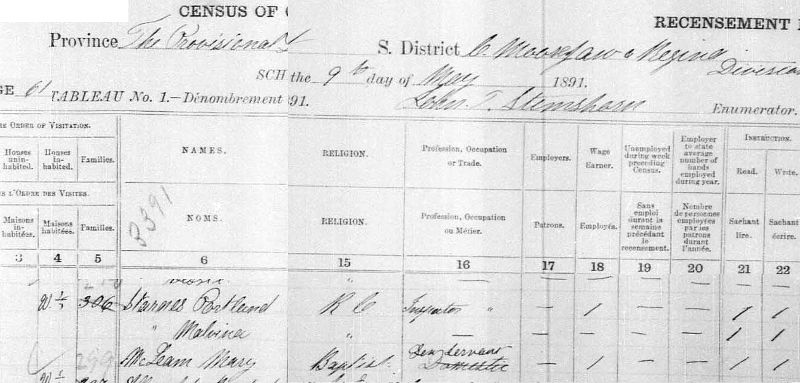 CENSUS OF
RECENSEMENT
Province The Provisional
S. District C. Moosejaw & Regina Division
SCH the 9th day of May 1891.
GE 61 TABLEAU No. 1.—Dénombrement 891.
John T. Stemshorn Enumerator.
RE ORDER OF VISITATION.
Houses uninhabited. Houses inhabited. Families. NAMES. RELIGION. Profession, Occupation or Trade. Employers. Wage Earner. Unemployed during week preceding Census. Employer to state average number of hands employed during year. INSTRUCTION. Read. Write.
S L'ORDRE DES VISITES.
Maisons inhabitées. Maisons habitées. Familles. NOMS. RELIGION. Profession, Occupation ou Métier. Patrons. Employés. Sans emploi durant la semaine précédant le recensement. Nombre de personnes employées par les patrons durant l'année. Sachant lire. Sachant écrire.
3391
3 4 5 6 15 16 17 18 19 20 21 22
" — — — — — —
306 Starnes Cortland R C Inspector " — 1 — — 1 1
" Malvina " — — — — — 1 1
299 McLeam Mary Baptist Gen Servant Domestic — 1 — — 1 1